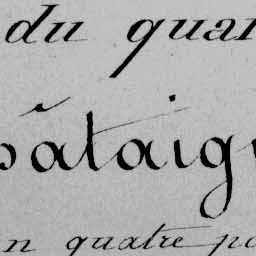 du quar
bâtaign
n quatre po